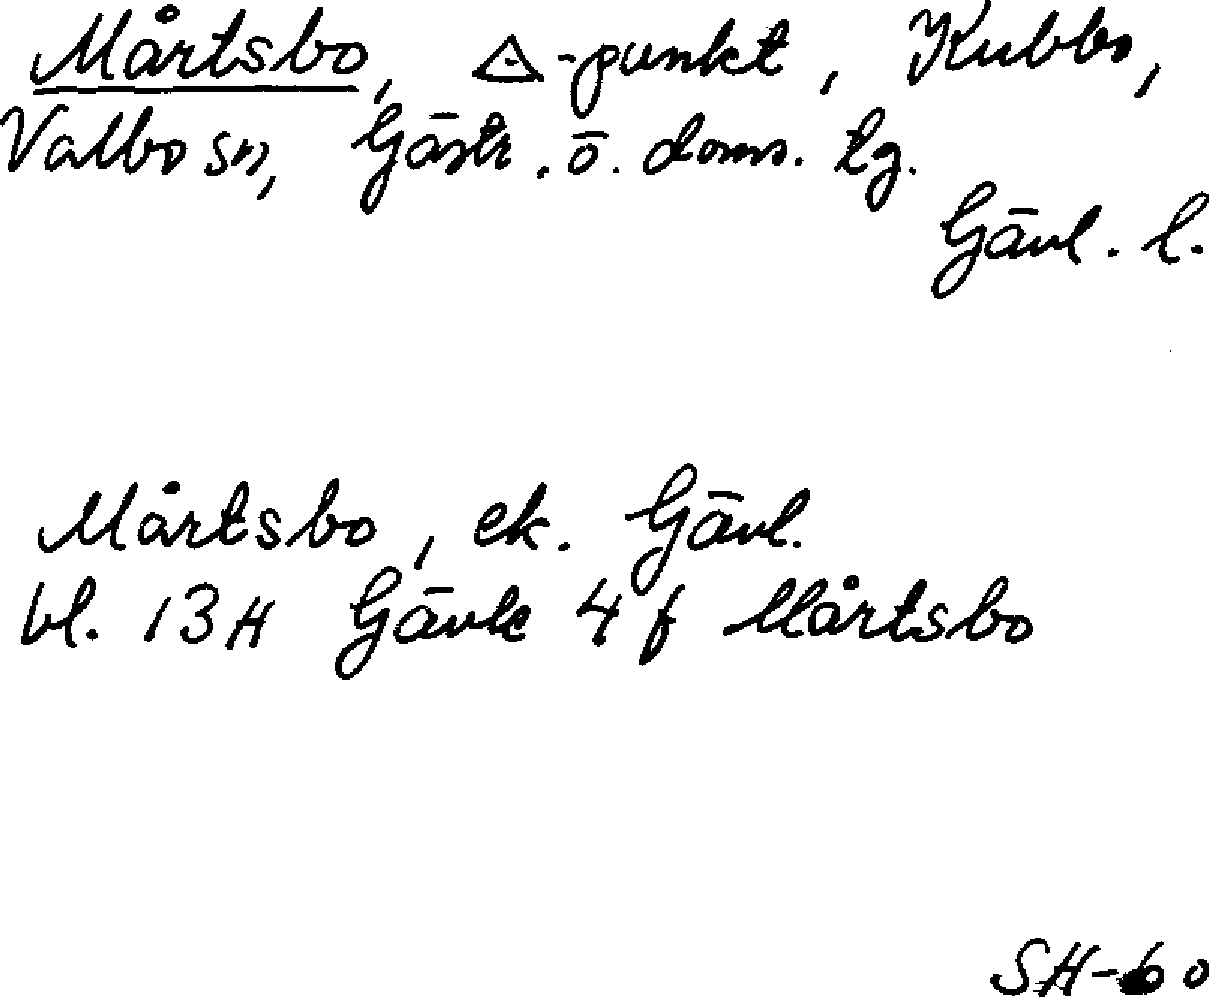 Mårtsbo, △-punkt, Kubbo,
Valbo sn, Gästr. ö. doms. tg.
Gävl. l.
Mårtsbo, ek. Gävl.
bl. 13H Gävle 4f Mårtsbo
SH-60